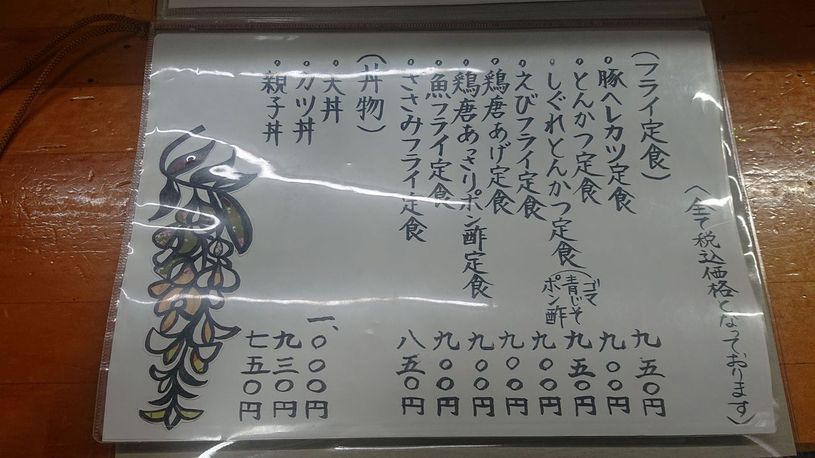 〈全て税込価格となっております〉
（フライ定食）
・豚ヘレカツ定食 九五〇円
・とんかつ定食 九〇〇円
・しぐれとんかつ定食（ゴマ 青じそ ポン酢 九五〇円
・えびフライ定食 九〇〇円
・鶏唐あげ定食 九〇〇円
・鶏唐あっさりポン酢定食 九〇〇円
・魚フライ定食 九〇〇円
・ささみフライ定食 八五〇円
（丼物）
・天丼 一、〇〇〇円
・カツ丼 九三〇円
・親子丼 七五〇円